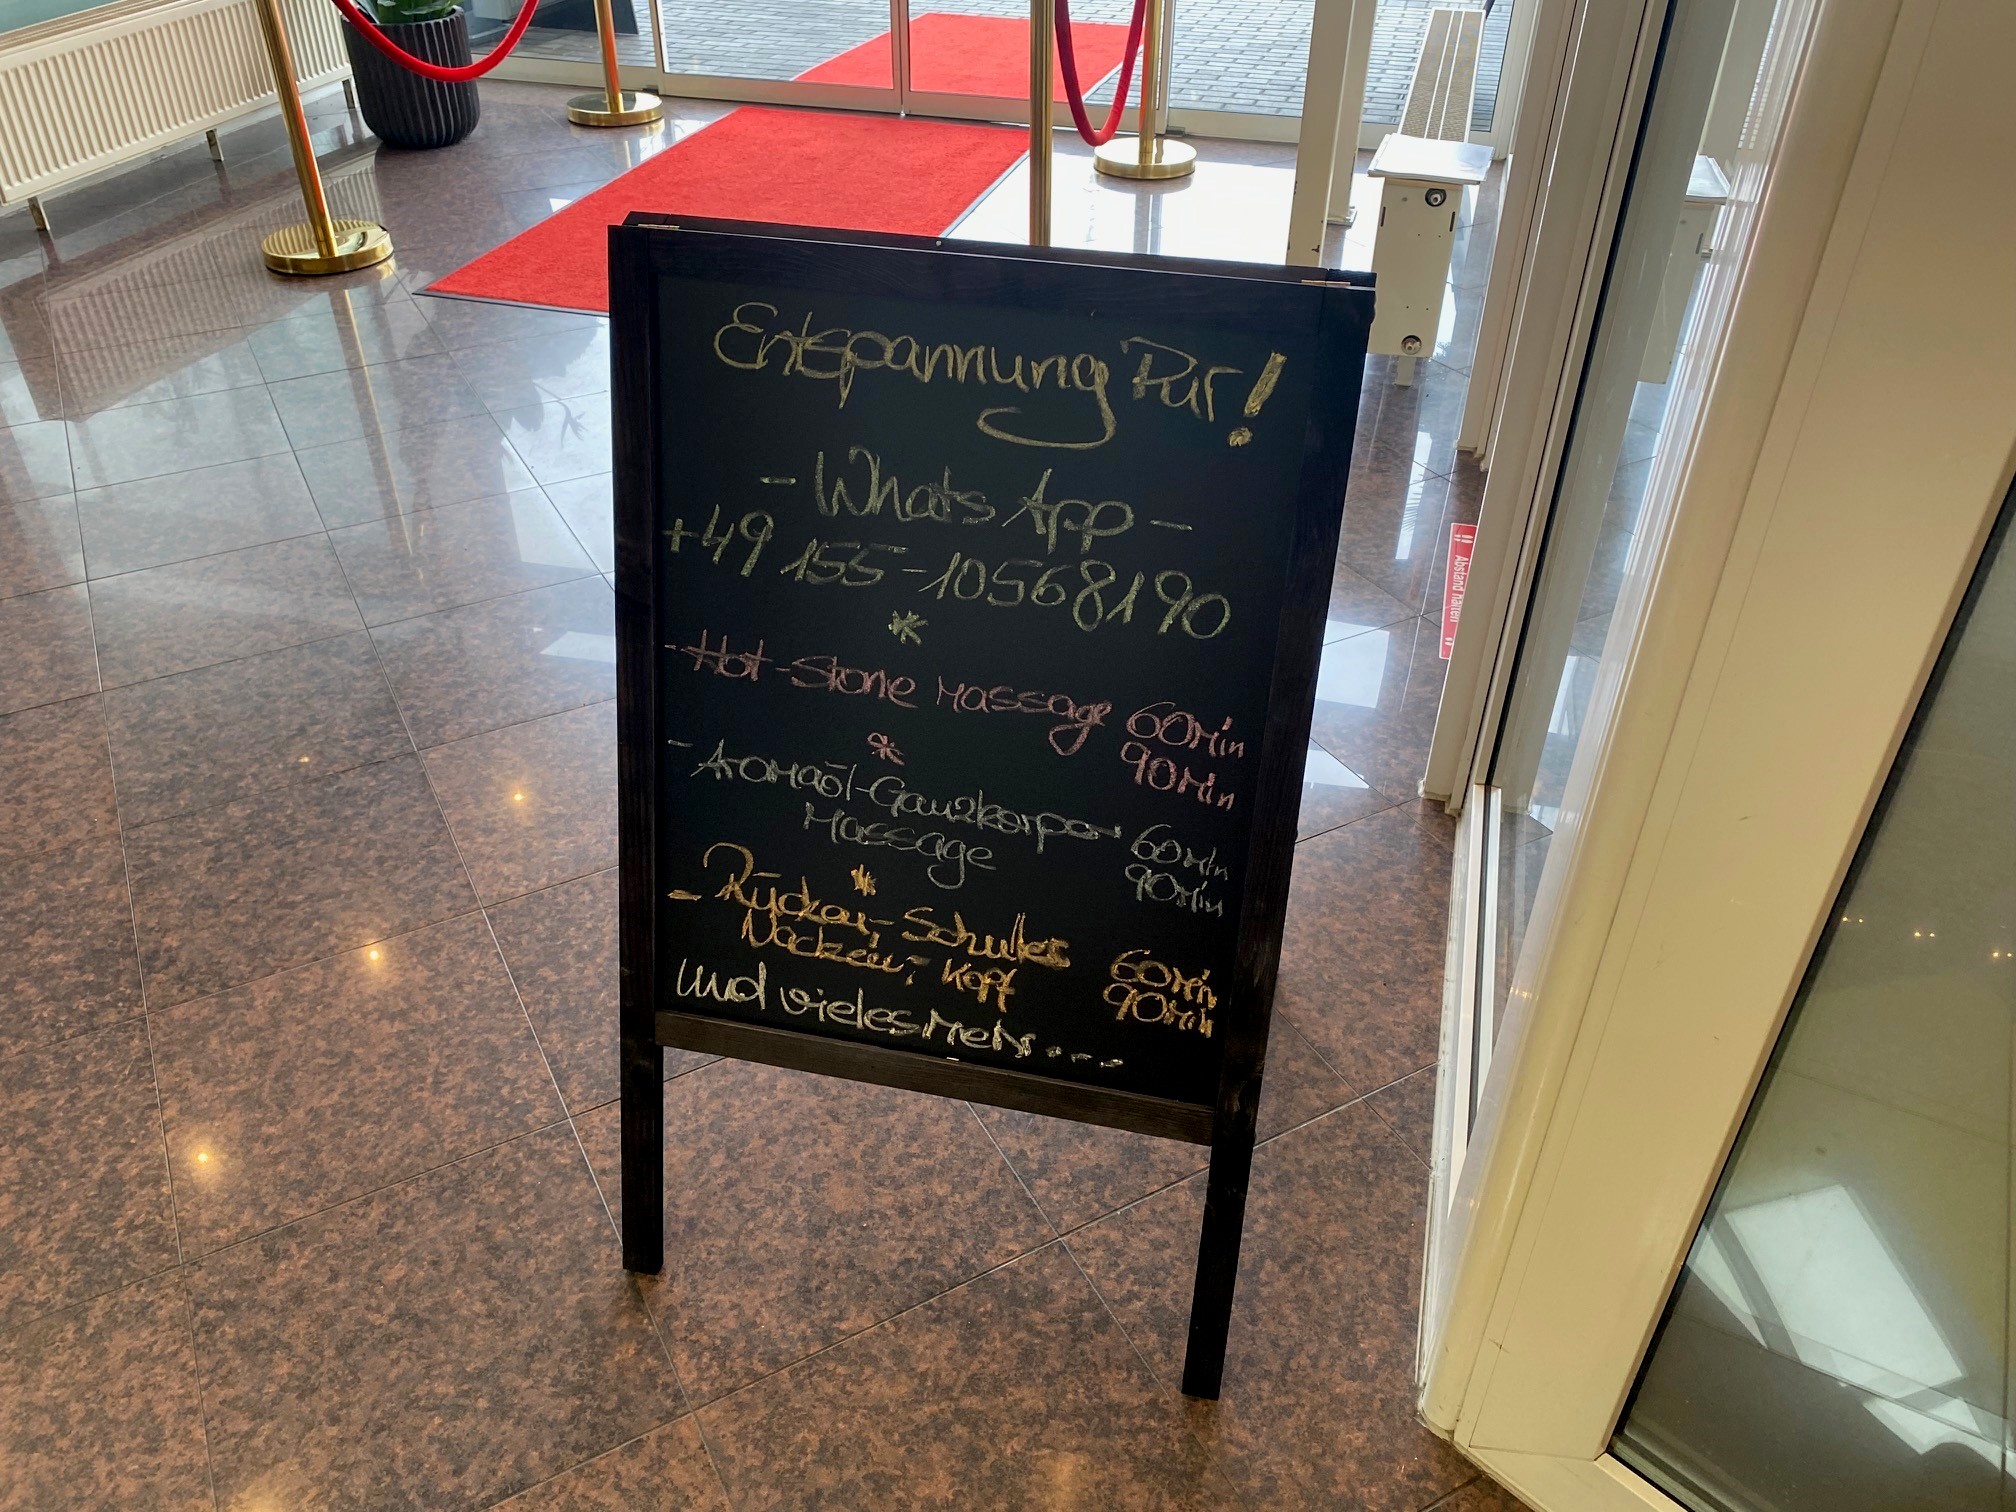 Entspannung Pur!
- WhatsApp -
+49 155-10568190
*
- Hot-Stone Massage 60 Min
90 Min
*
- Aromaöl-Ganzkörper 60 Min
Massage 90 Min
*
- Rücken, Schulter 60 Min
Nacken, Kopf 90 Min
und vieles Mehr....
!! Abstand halten !!